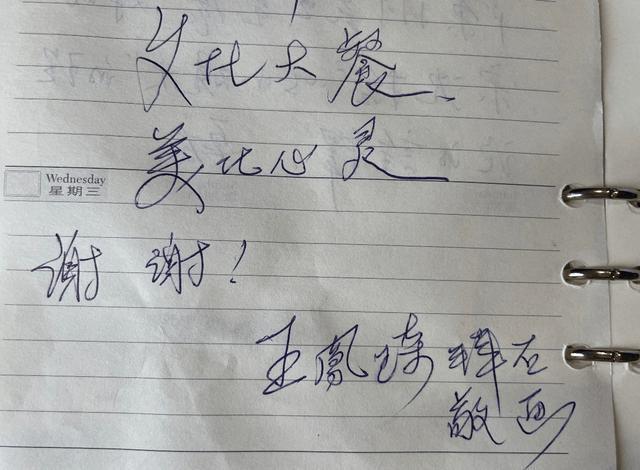 文化大餐、
美化心灵
Wednesday
星期三
谢谢!
王凤琦
敬画